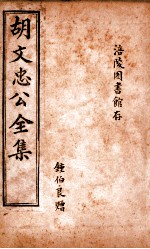 胡文忠公全集
涪陵図書館存
鍾伯良贈